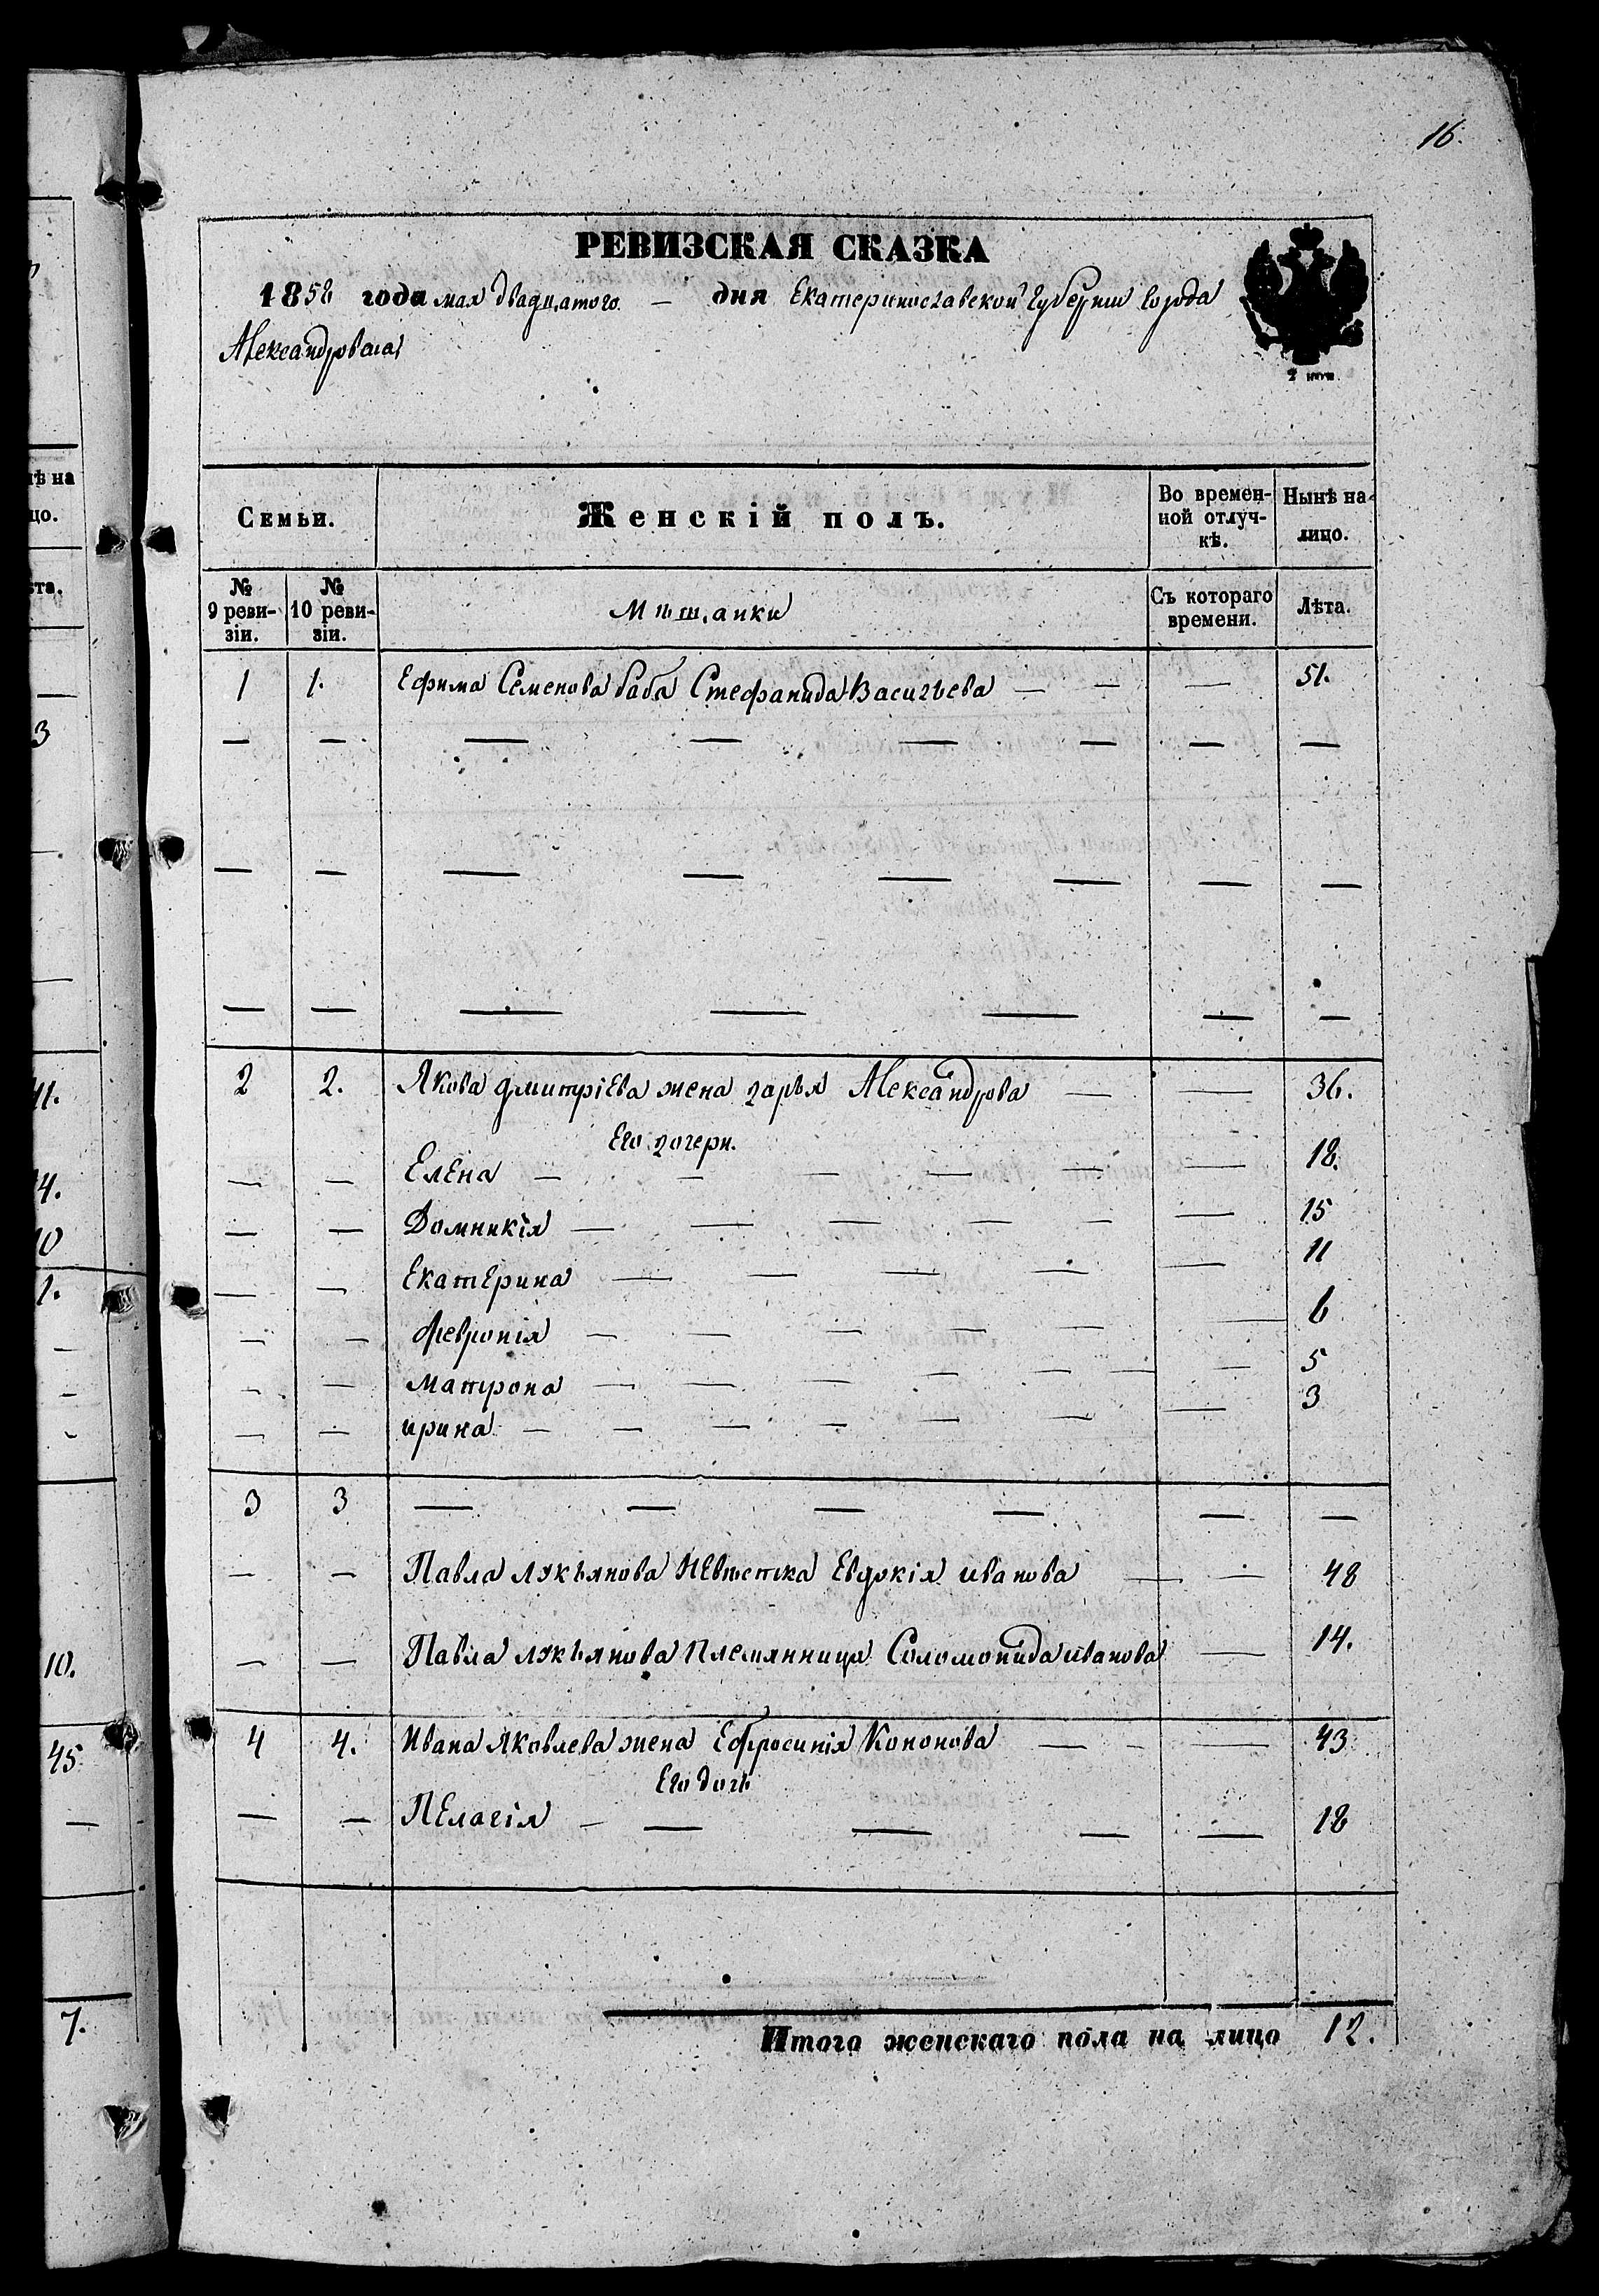 нѣ на
цо.
ѣта.
3
41.
4.
10
1.
10.
45
7.
16.
РЕВИЗСКАЯ СКАЗКА
1858 года мая двадцатого — дня Екатеринославской Губернии города
Александровска
Семьи. Женскій полъ. Во времен-ной отлуч-кѣ. Нынѣ на-лицо.
№ 9 реви-зіи. № 10 реви-зіи. Мѣщанки Съ котораго времени. Лѣта.
1 1. Ефима Семенова баба Стефанида Васильева — — — 51.
— — — — — — — —
— — — — — — — —
— — — — — — —
2 2. Якова Дмитріева жена Дарья Александрова — — 36.
Его дочери.
— — Елена — — — — — — 18.
— — Домникія — — — — — — 15
— — Екатерина — — — — — 11
— — Февронія — — — — — — 6
— — Матрона — — — — — — — 5
— — Ирина — — — — — — — 3
3 3 — — — — — —
— — Павла Лукьянова Невѣстка Евдокія Иванова — — 48
— — Павла Лукьянова Племянница Соломонида Иванова — 14.
4 4. Ивана Яковлева жена Ефросинія Кононова — — — 43
Его дочь
— — Пелагія — — — — — 18
Итого женскаго пола на лицо 12.